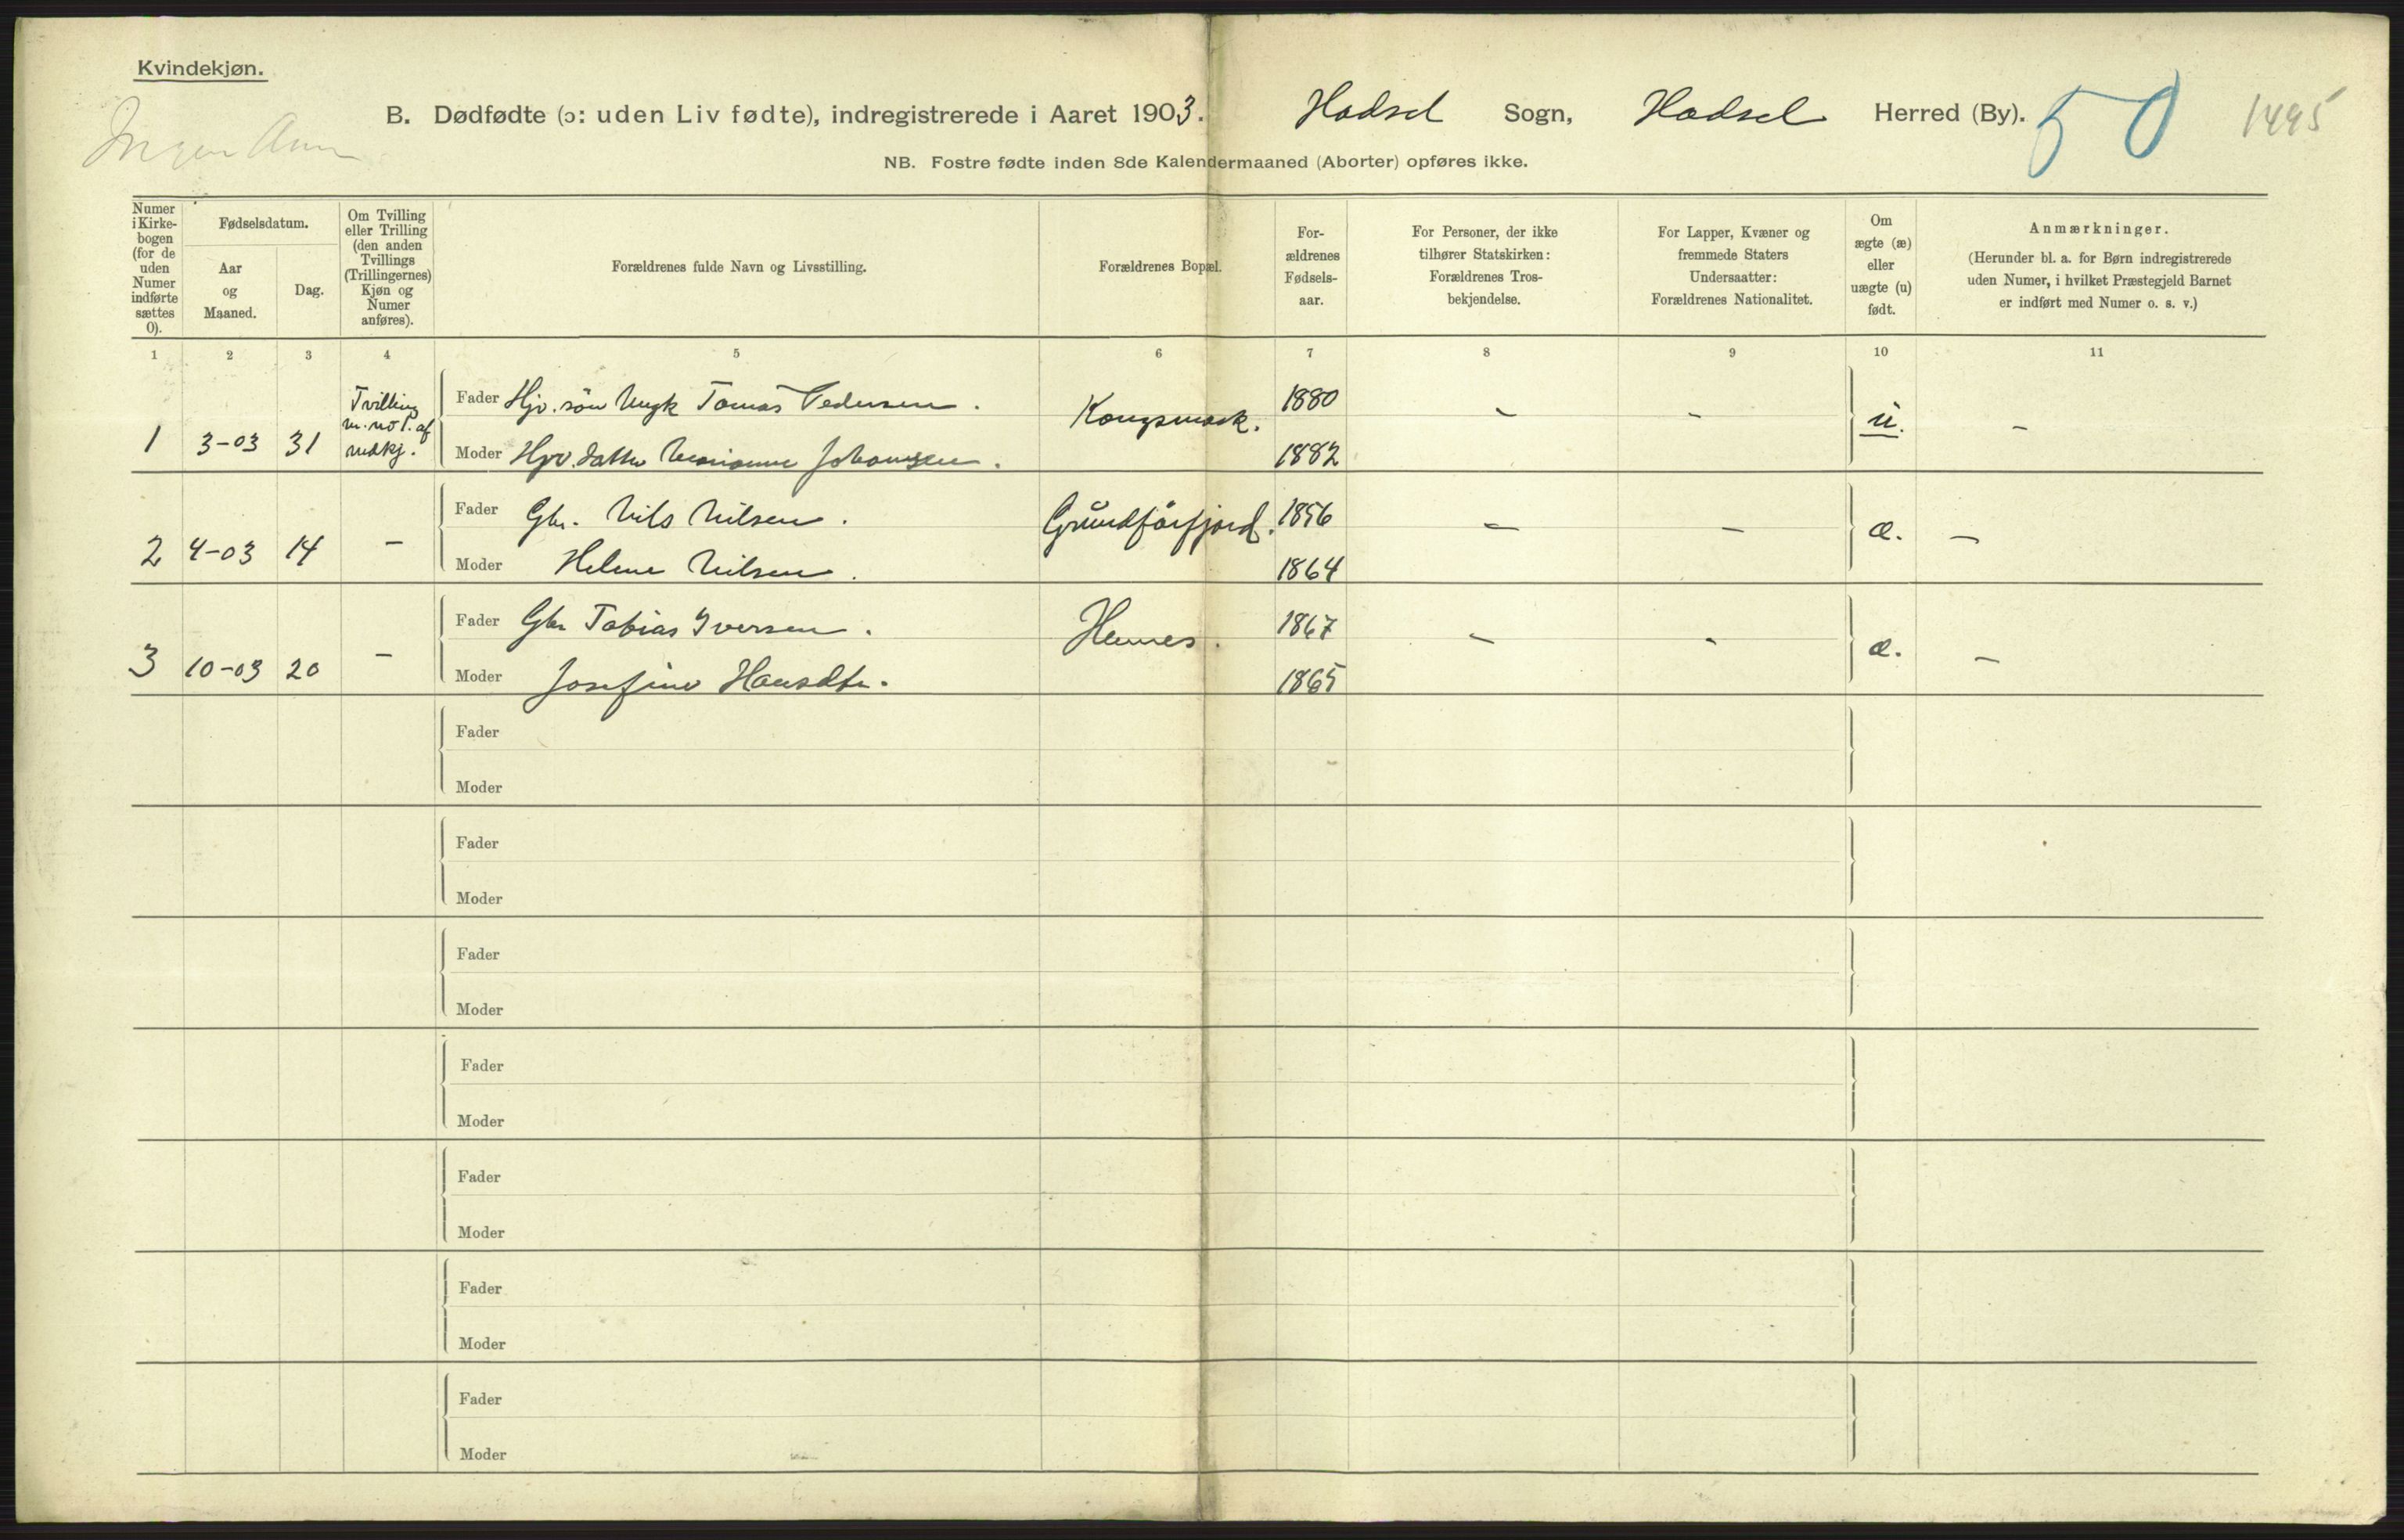 Kvindekjøn.
B. Dødfødte (ɔ: uden Liv fødte), indregistrerede i Aaret 1903. Hadsel Sogn, Hadsel Herred (By). 50 1495
Ingen Anm
NB. Fostre fødte inden 8de Kalendermaaned (Aborter) opføres ikke.
Numer i Kirke-bogen (for de uden Numer indførte sættes 0).
Fødselsdatum.
Aar og Maaned.
Dag.
Om Tvilling eller Trilling (den anden Tvillings (Trillingernes) Kjøn og Numer anføres).
Forældrenes fulde Navn og Livsstilling.
Forældrenes Bopæl.
For-ældrenes Fødsels-aar.
For Personer, der ikke tilhører Statskirken: Forældrenes Tros-bekjendelse.
For Lapper, Kvæner og fremmede Staters Undersaatter: Forældrenes Nationalitet.
Om ægte (æ) eller uægte (u) født.
Anmærkninger.
(Herunder bl. a. for Børn indregistrerede uden Numer, i hvilket Præstegjeld Barnet er indført med Numer o. s. v.)
1 2 3 4 5 6 7 8 9 10 11
Tvilling m. no 1. af mdkj.
Fader Hjv. søn Ungk Tomas Pedersen. 1880
1 3-03 31 Kongsmark. - - u. -
Moder Hjv. datter Marianne Johansen. 1882
Fader Gbr. Nils Nilsen. 1856
2 4-03 14 - Grundførfjord. - - æ. -
Moder Helene Nilsen. 1864
Fader Gbr Tobias Iversen. 1867
3 10-03 20 - Hennes. - - æ. -
Moder Josefine Hansdtr. 1865
Fader
Moder
Fader
Moder
Fader
Moder
Fader
Moder
Fader
Moder
Fader
Moder
Fader
Moder